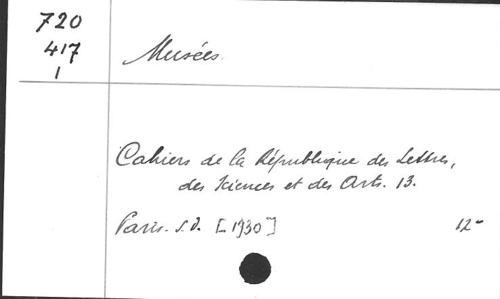 720
417
1
Musées.
Cahiers de la République des Lettres,
des Sciences et des Arts. 13.
Paris. s.d. [1930] 12°